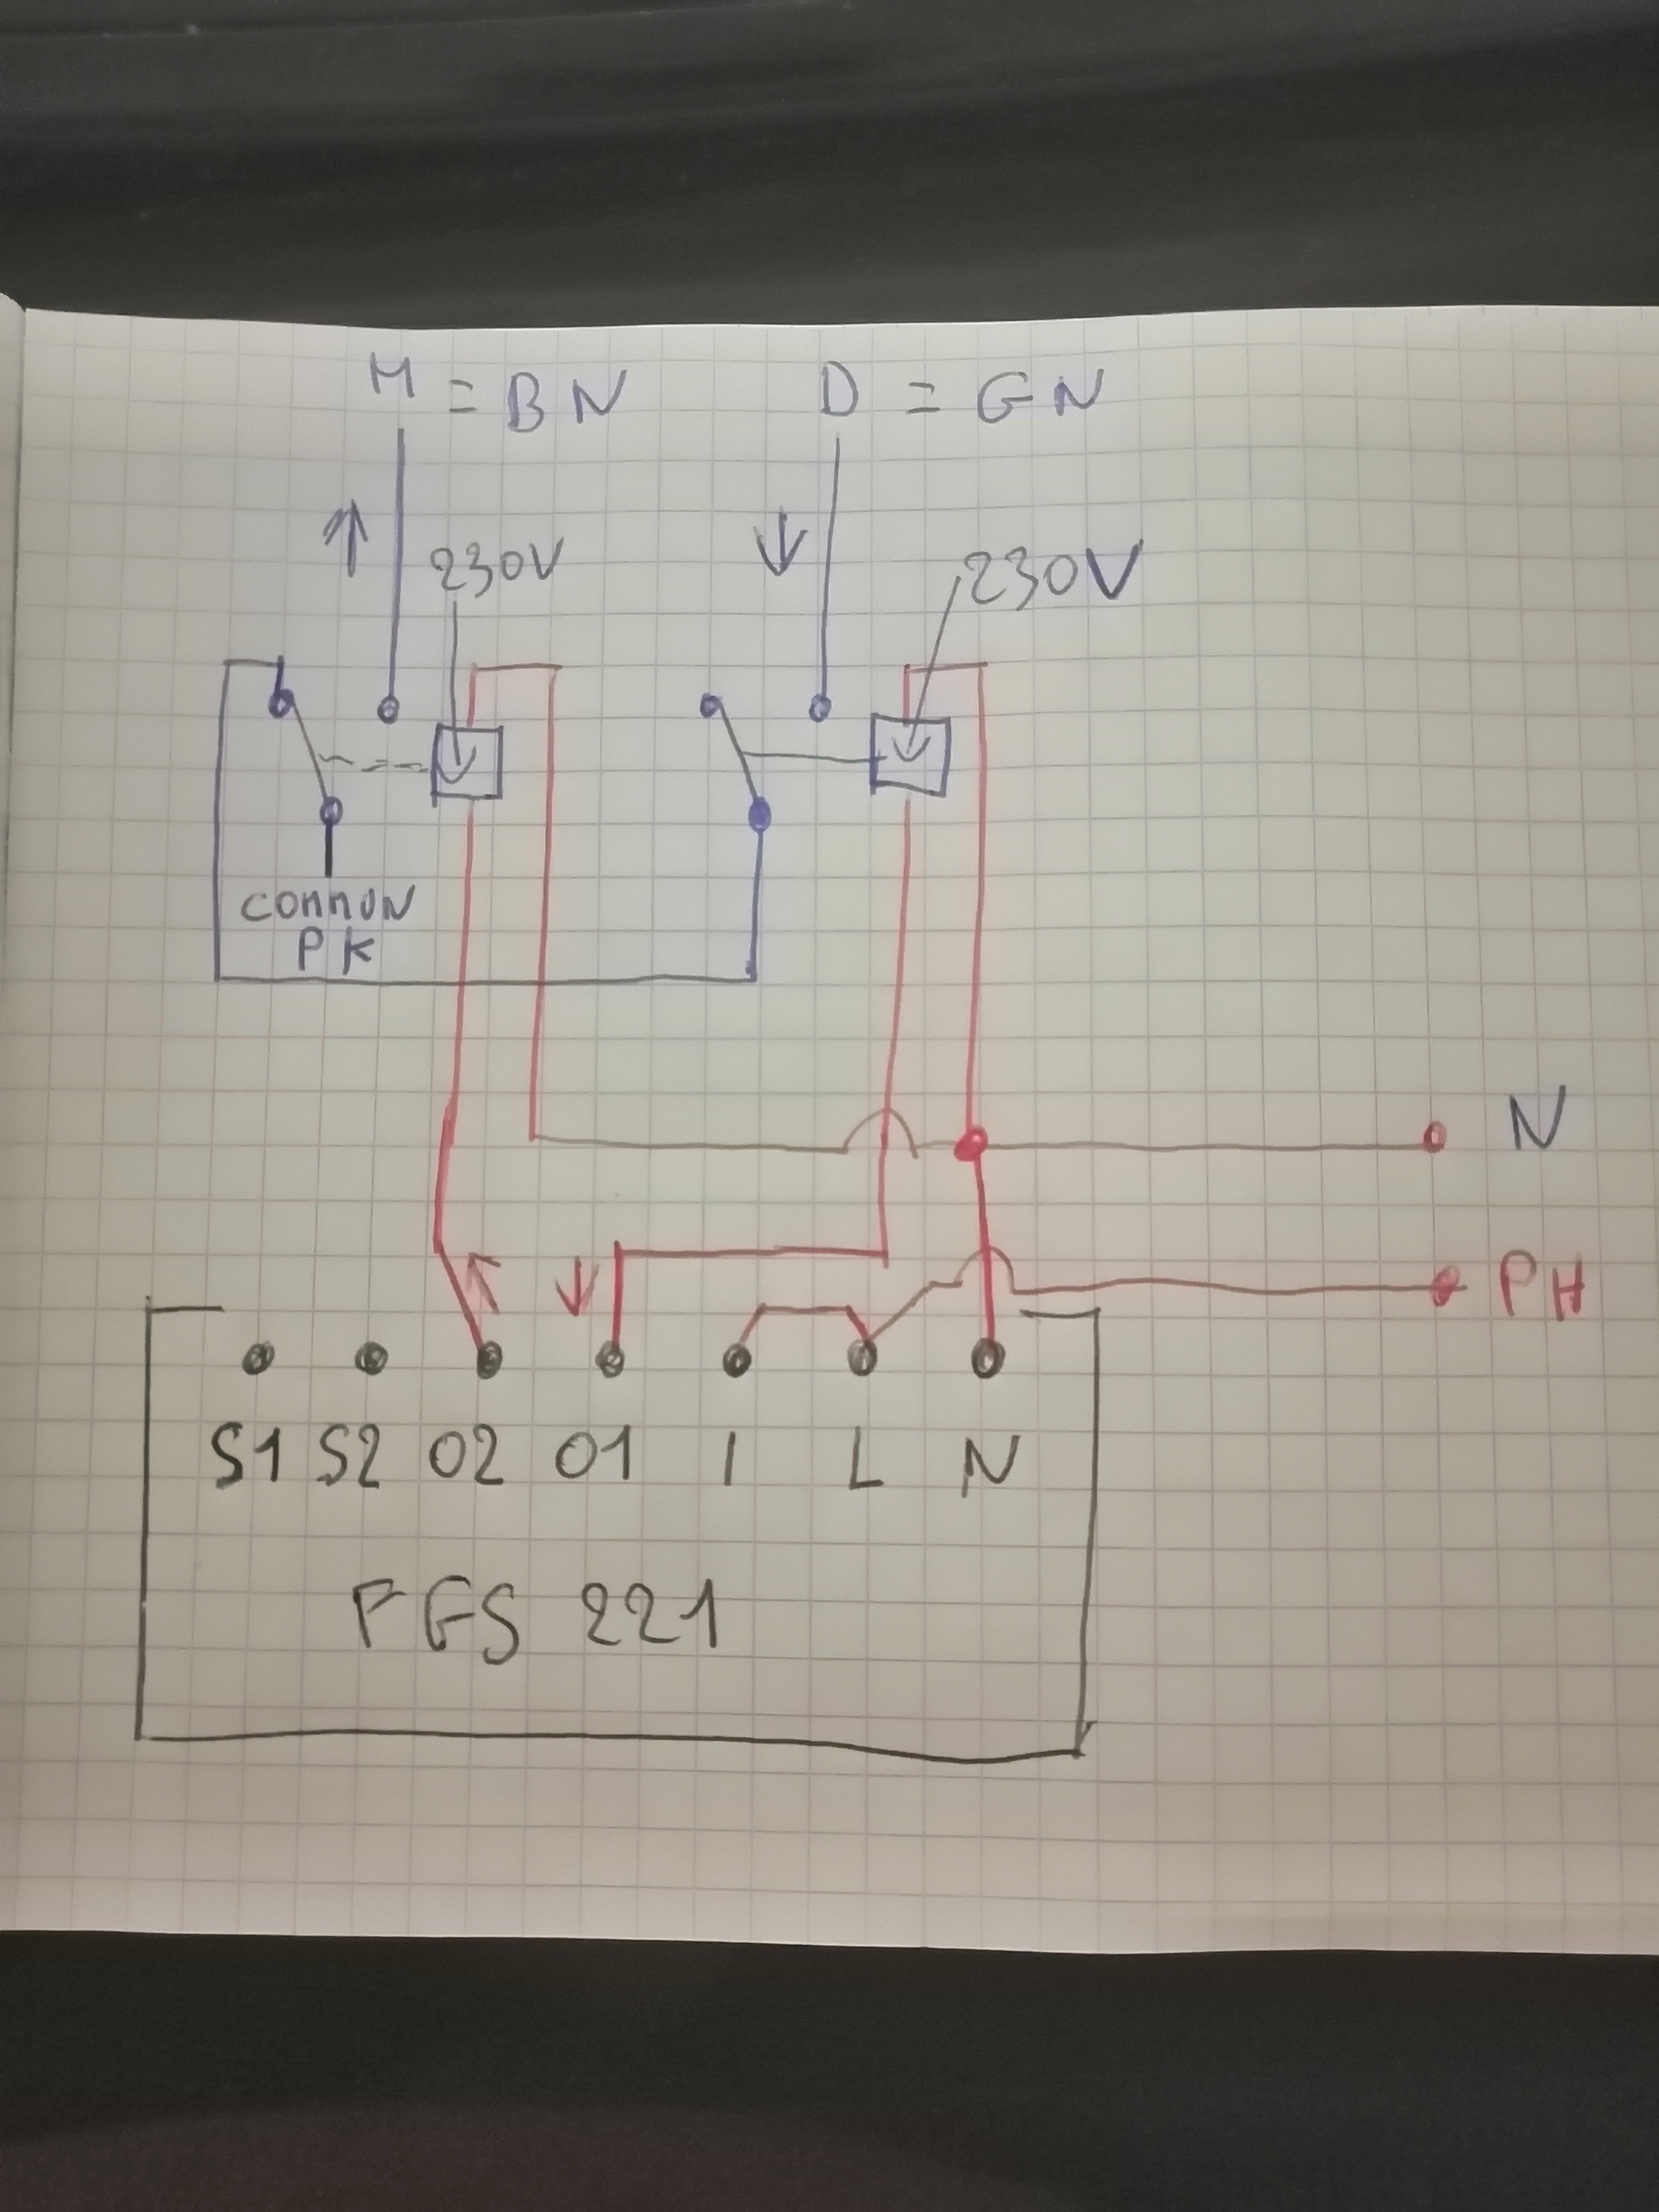 M = BN
D = GN
230V
230V
COMMON
PK
N
PH
S1 S2 O2 O1 I L N
FGS 221